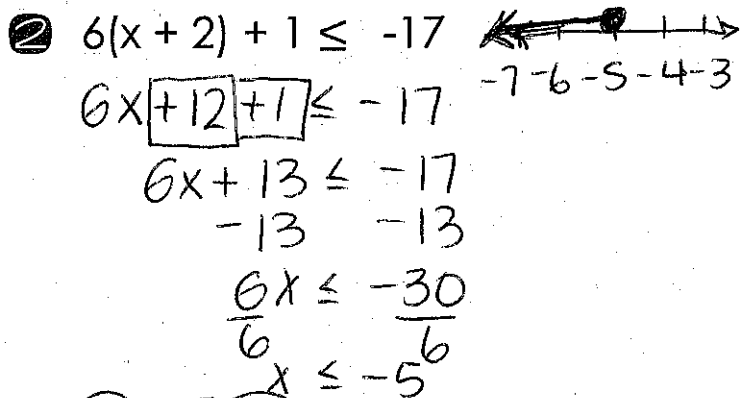 2 6(x + 2) + 1 ≤ -17
-7 -6 -5 -4 -3
6x +12 +1 ≤ -17
6x + 13 ≤ -17
-13 -13
6x ≤ -30
6 6
x ≤ -5